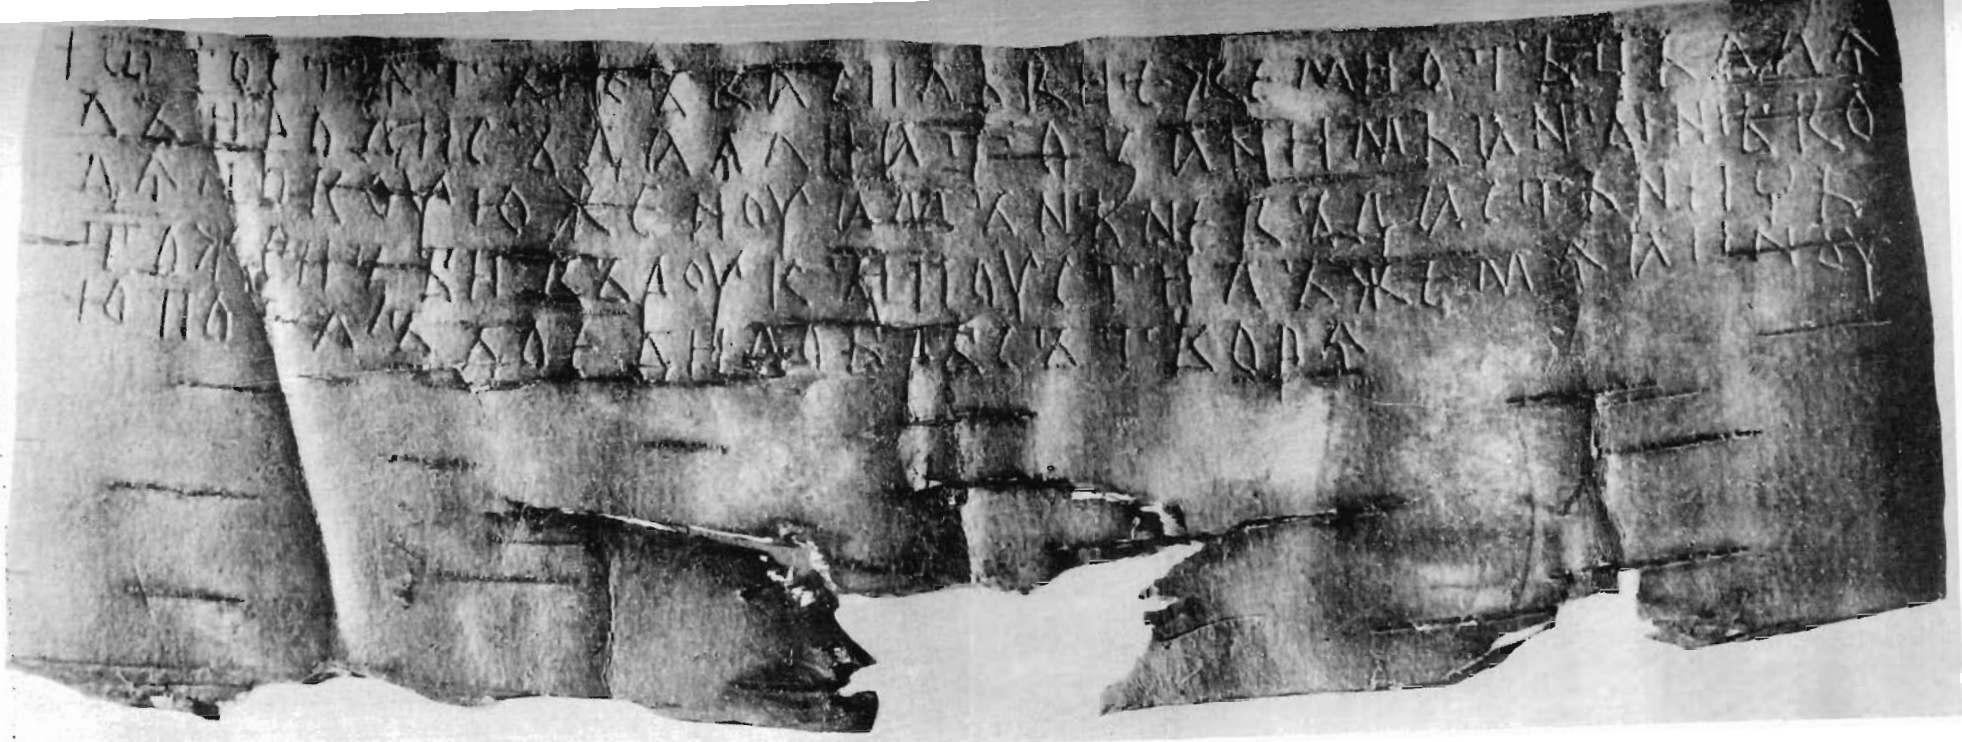 + ѿ гостѧты къ васильви ѥже ми отьць даꙗ
лъ и роди съдаꙗли а то за нимь а нынѣ во
дѧ новоую женоу а мънѣ не въдасть ничь
то же избивъ роукы поустилъ же мѧ а иноу
ю поꙗлъ доеди добрѣ сътворѧ